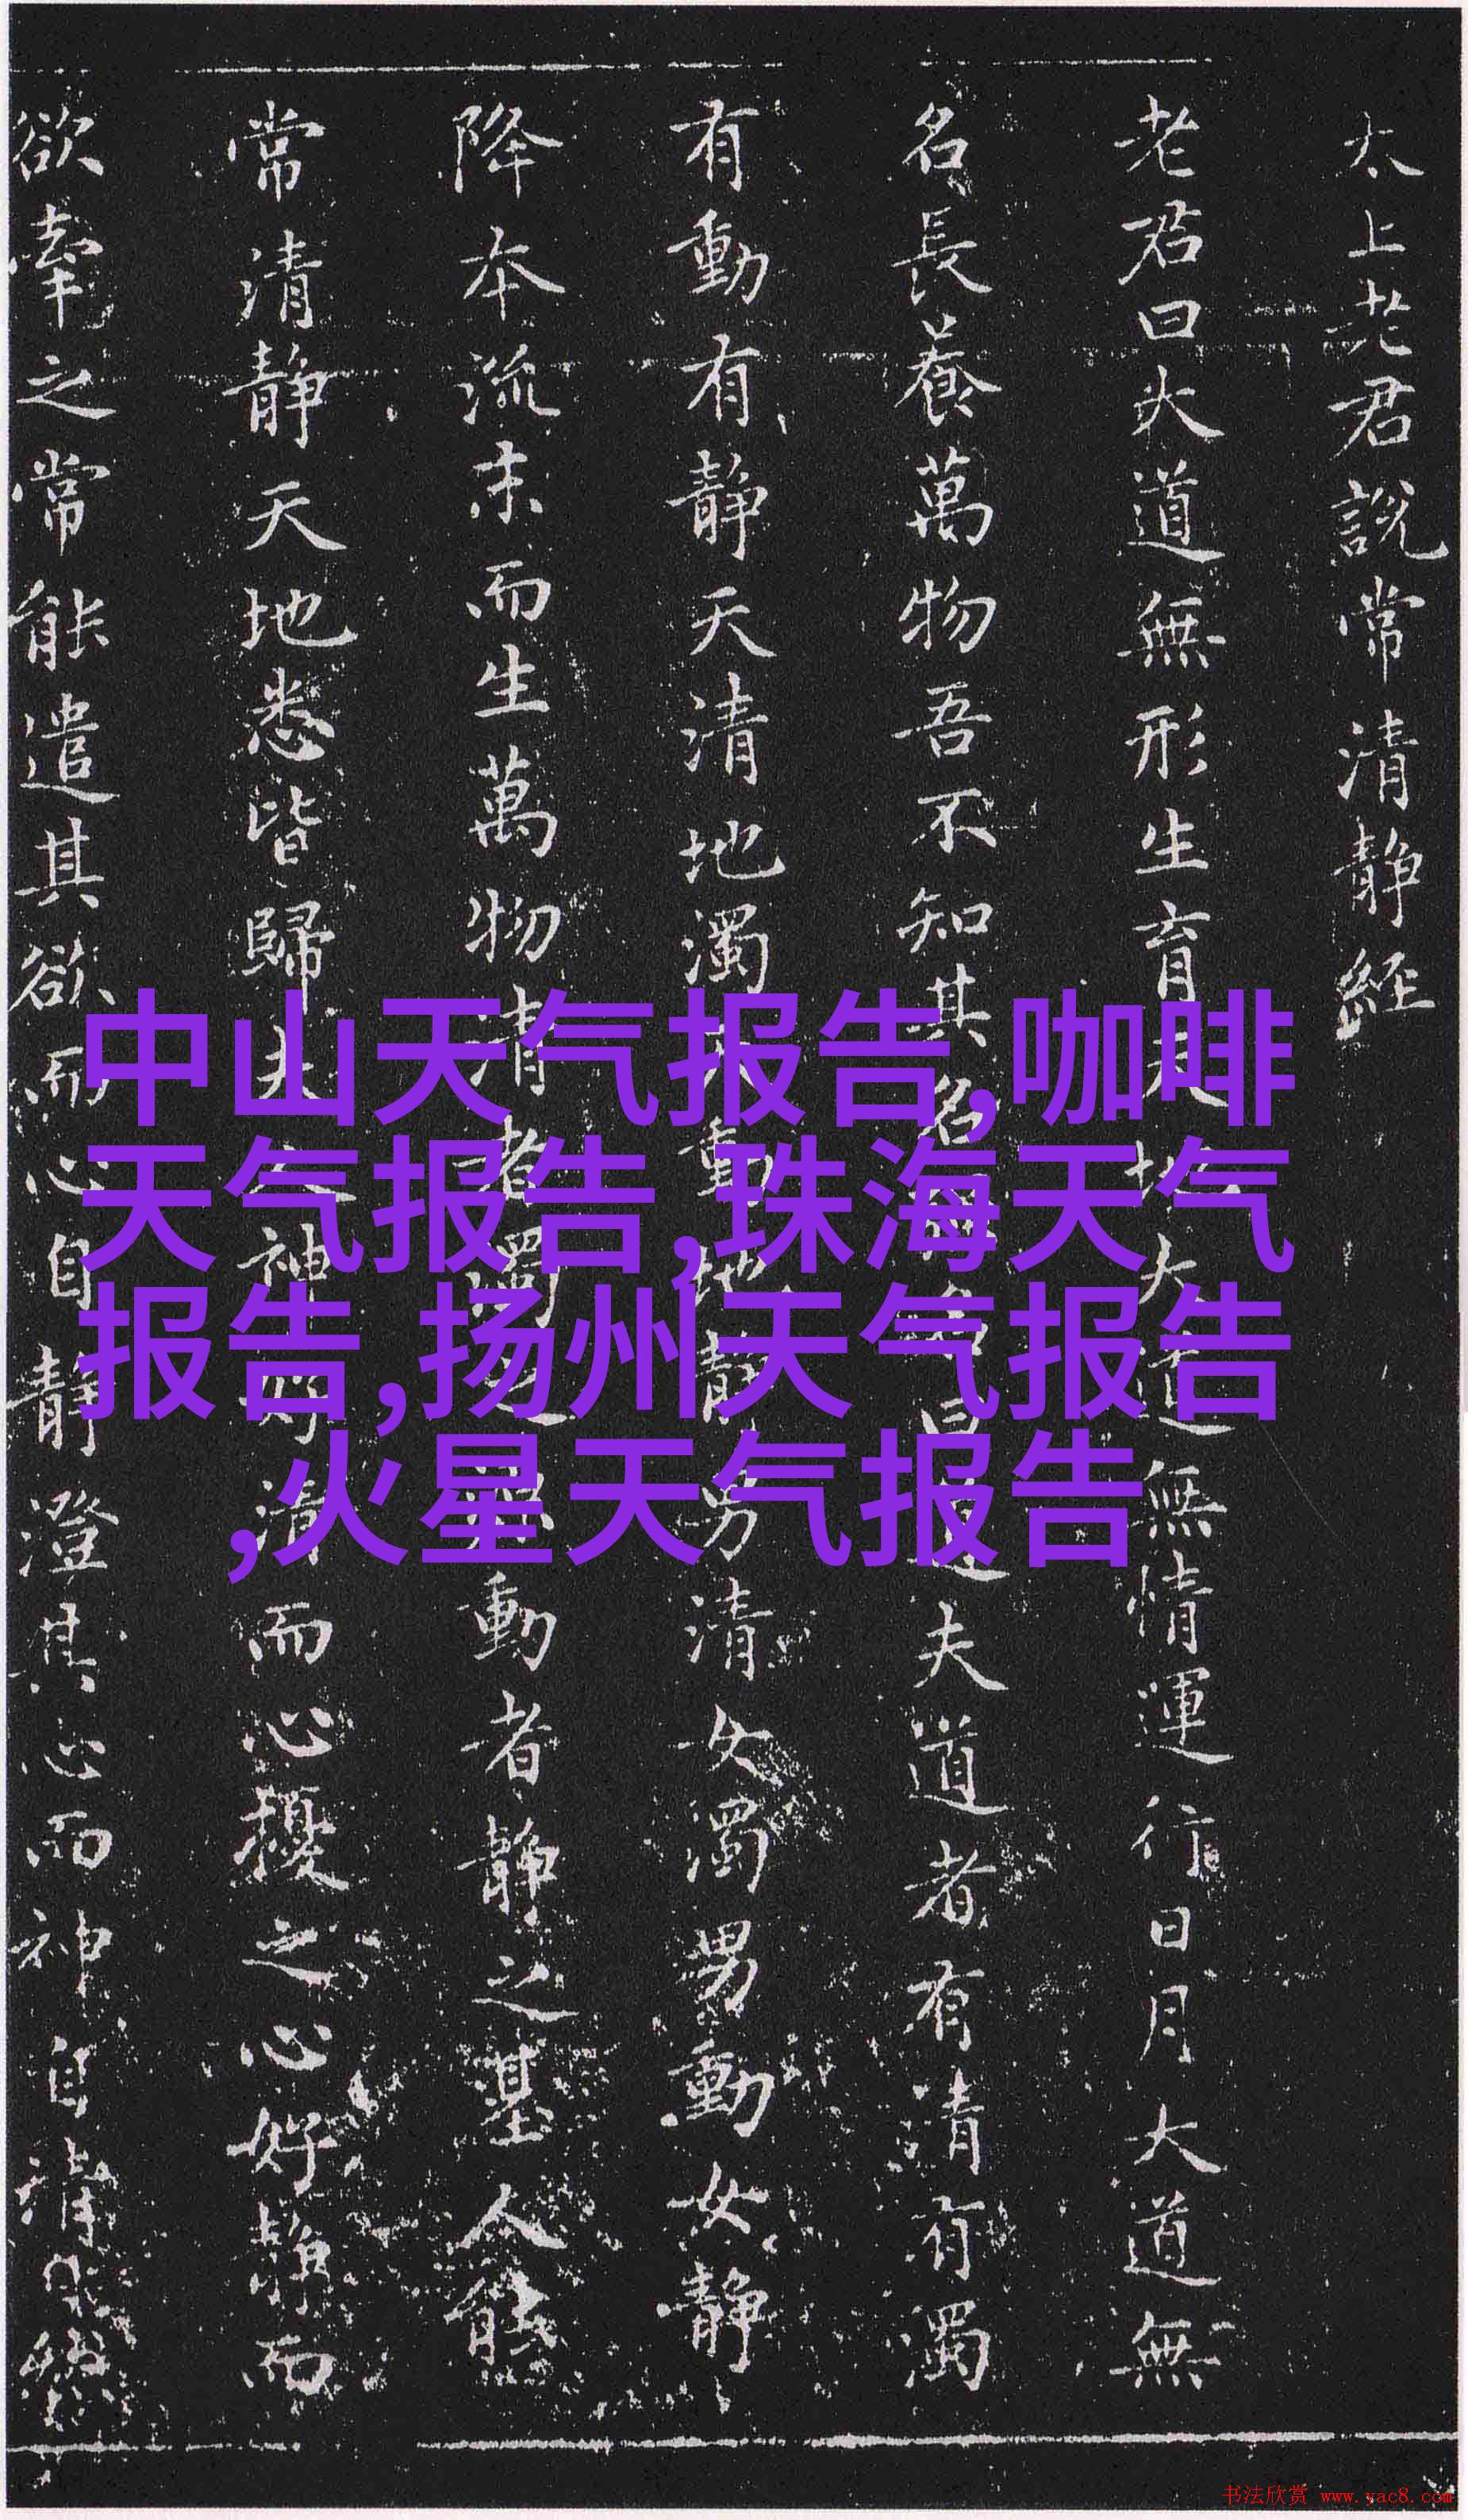 太上老君說常清靜經
老君曰大道無形生育天地大道無情運行日月大道無
名長養萬物吾不知其名名曰道夫道者有清有濁
有動有靜天清地濁天動地靜男清女濁男動女靜
降本流末而生萬物清者濁之源動者靜之基人能
常清靜天地悉皆歸夫人神好清而心擾之心好靜而
欲牽之常能遣其欲而心自靜澄其心而神自清
中山天气报告,咖啡
天气报告,珠海天气
报告,扬州天气报告
,火星天气报告
书法欣赏 www.yac8.com